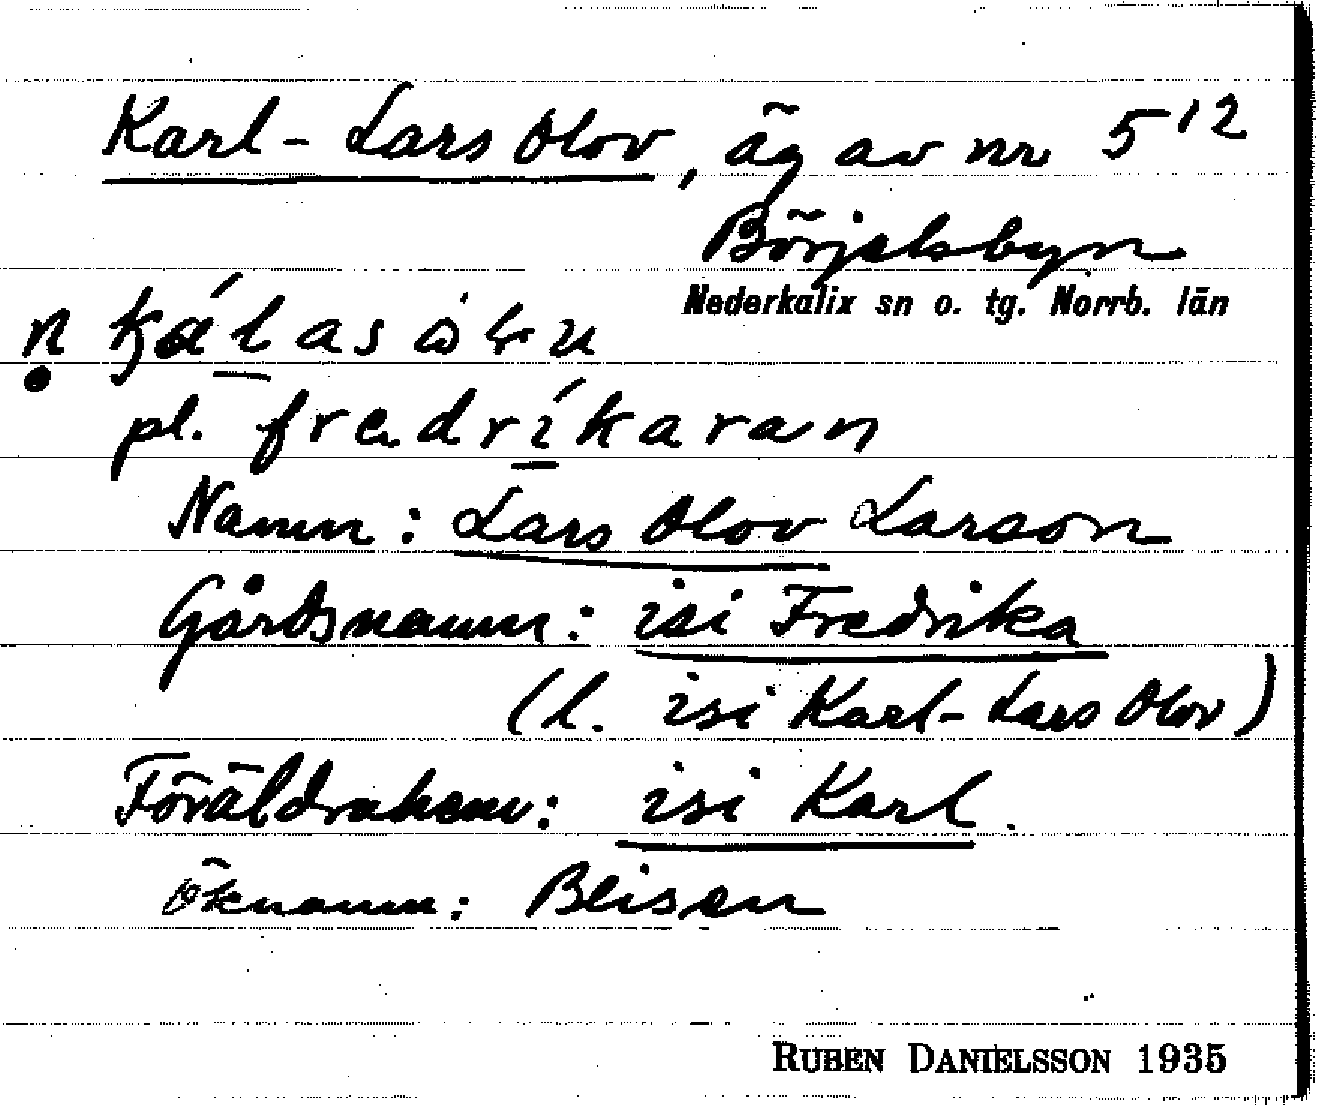 Karl-Lars Olov, äg av nr 5¹²
Börjelsbyn
Nederkalix sn o. tg. Norrb. län
n
pl. fredríkaran
Namn: Lars Olov Larson
Gårdsnamn: isi Fredrika
(l. isi Karl-Lars Olov)
Föräldrahem: isi Karl.
Öknamn: Bleisen
RUBEN DANIELSSON 1935